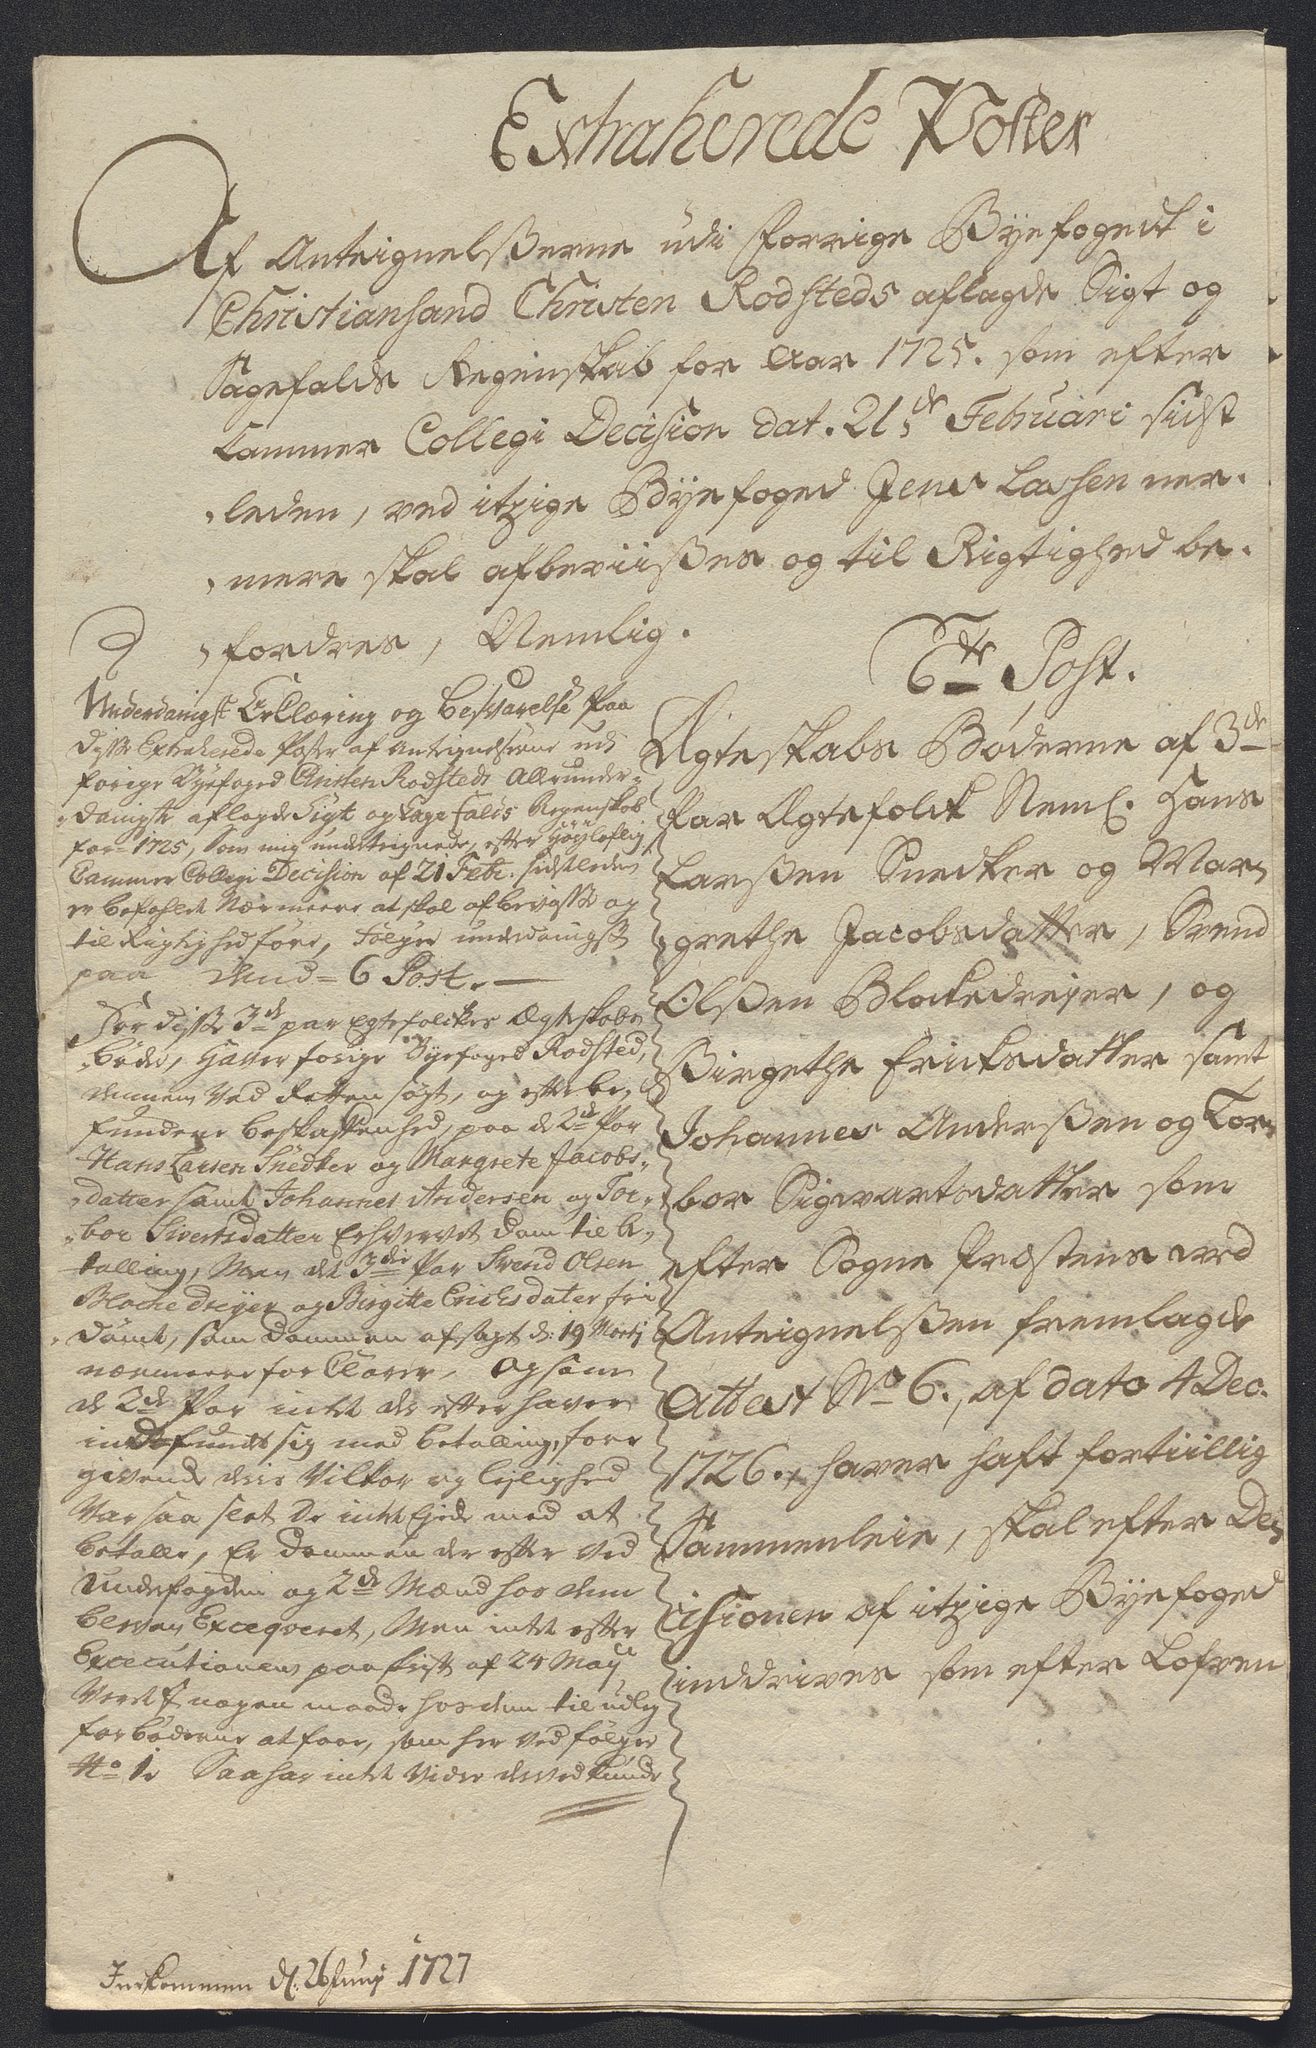 Extraherede Poster
Af Anteignelßerne udi forrige Byefogedt i
Christiansand Christen Rodsteds aflagde Sigt og
Sagefalds Regenskab for Aar 1725. som efter
Cammer Collegi Decision dat. 21de Februari sidst
leden, ved itzige Byefoged Jens Lassen ner-
mere skal afbeviißes og til Rigtighed be-
fordres, Nemlig.
6te Post.
Ægteskabs Bøderne af 3de
Par Ægtefolck Neml. Hans
Larßen Snedker og Mar-
grethe Jacobsdatter, Svend
Olßen Blockedreyer, og
Birgethe Ericksdatter samt
Johannes Anderßen og Tor-
bor Sigvartsdatter som
efter Sogne Præstens ved
Anteignelßen fremlagde
Attest No 6., af dato 4 Dec.
1726., haver haft fortiillig
Sammenleie, skal efter De-
cisionen af itzige Byefoged
inddrives som efter Lofven
Underdanigst Erklæring og besvarelse paa
disse Extraherede Poster af Antegnelserne udi
forige Byefoged Christen Rodsteds Allerunder-
danigste aflagde Sigt og Sage falds Regenskab
for 1725, som mig undertegnede, efter Høyloflig
Cammer Collegi Decision af 21 Febr. sidstleden
er befahlet Nærmeere at skal afbeviisse og
til Rigtighed føre, følger underdanigst
paa dend 6 Post.
For disse 3de par Egtefolckes Ægteskabs
bøder, haver forige Byefoged Rodsted,
dennem ved Retten søgt, og efter be-
fundene beskaffenhed, paa de 2de Par
Hans Larsen Snedker og Margrete Jacobs-
datter samt Johannes Andersen og Tor-
bor Sivertsdatter Erhvervet dom til be-
talling, Men det 3die Par Svend Olsen
Blocke dreyer og Birgitte Erichsdater fri
dømt, som dommen afsagt d: 19 Martj
nærmeere forklarer, Og som
de 2de Par intet der efter haver
indfundet sig med betalling, fore
givende deris Vilkor og leylighed
Var saa slet de intet Ejede med at
betalle, Er dommen der efter ved
Underfogden og 2de Mænd hos dem
bleven Execqveret, Men intet efter
Executionens paaskrift af 24 Maij
Verit I nogen maade hos dem til udleg
for bøderne at faae, som her ved følger
No 1. Saa har intet vider derved kunde
Indkommen d. 26 Junij 1727